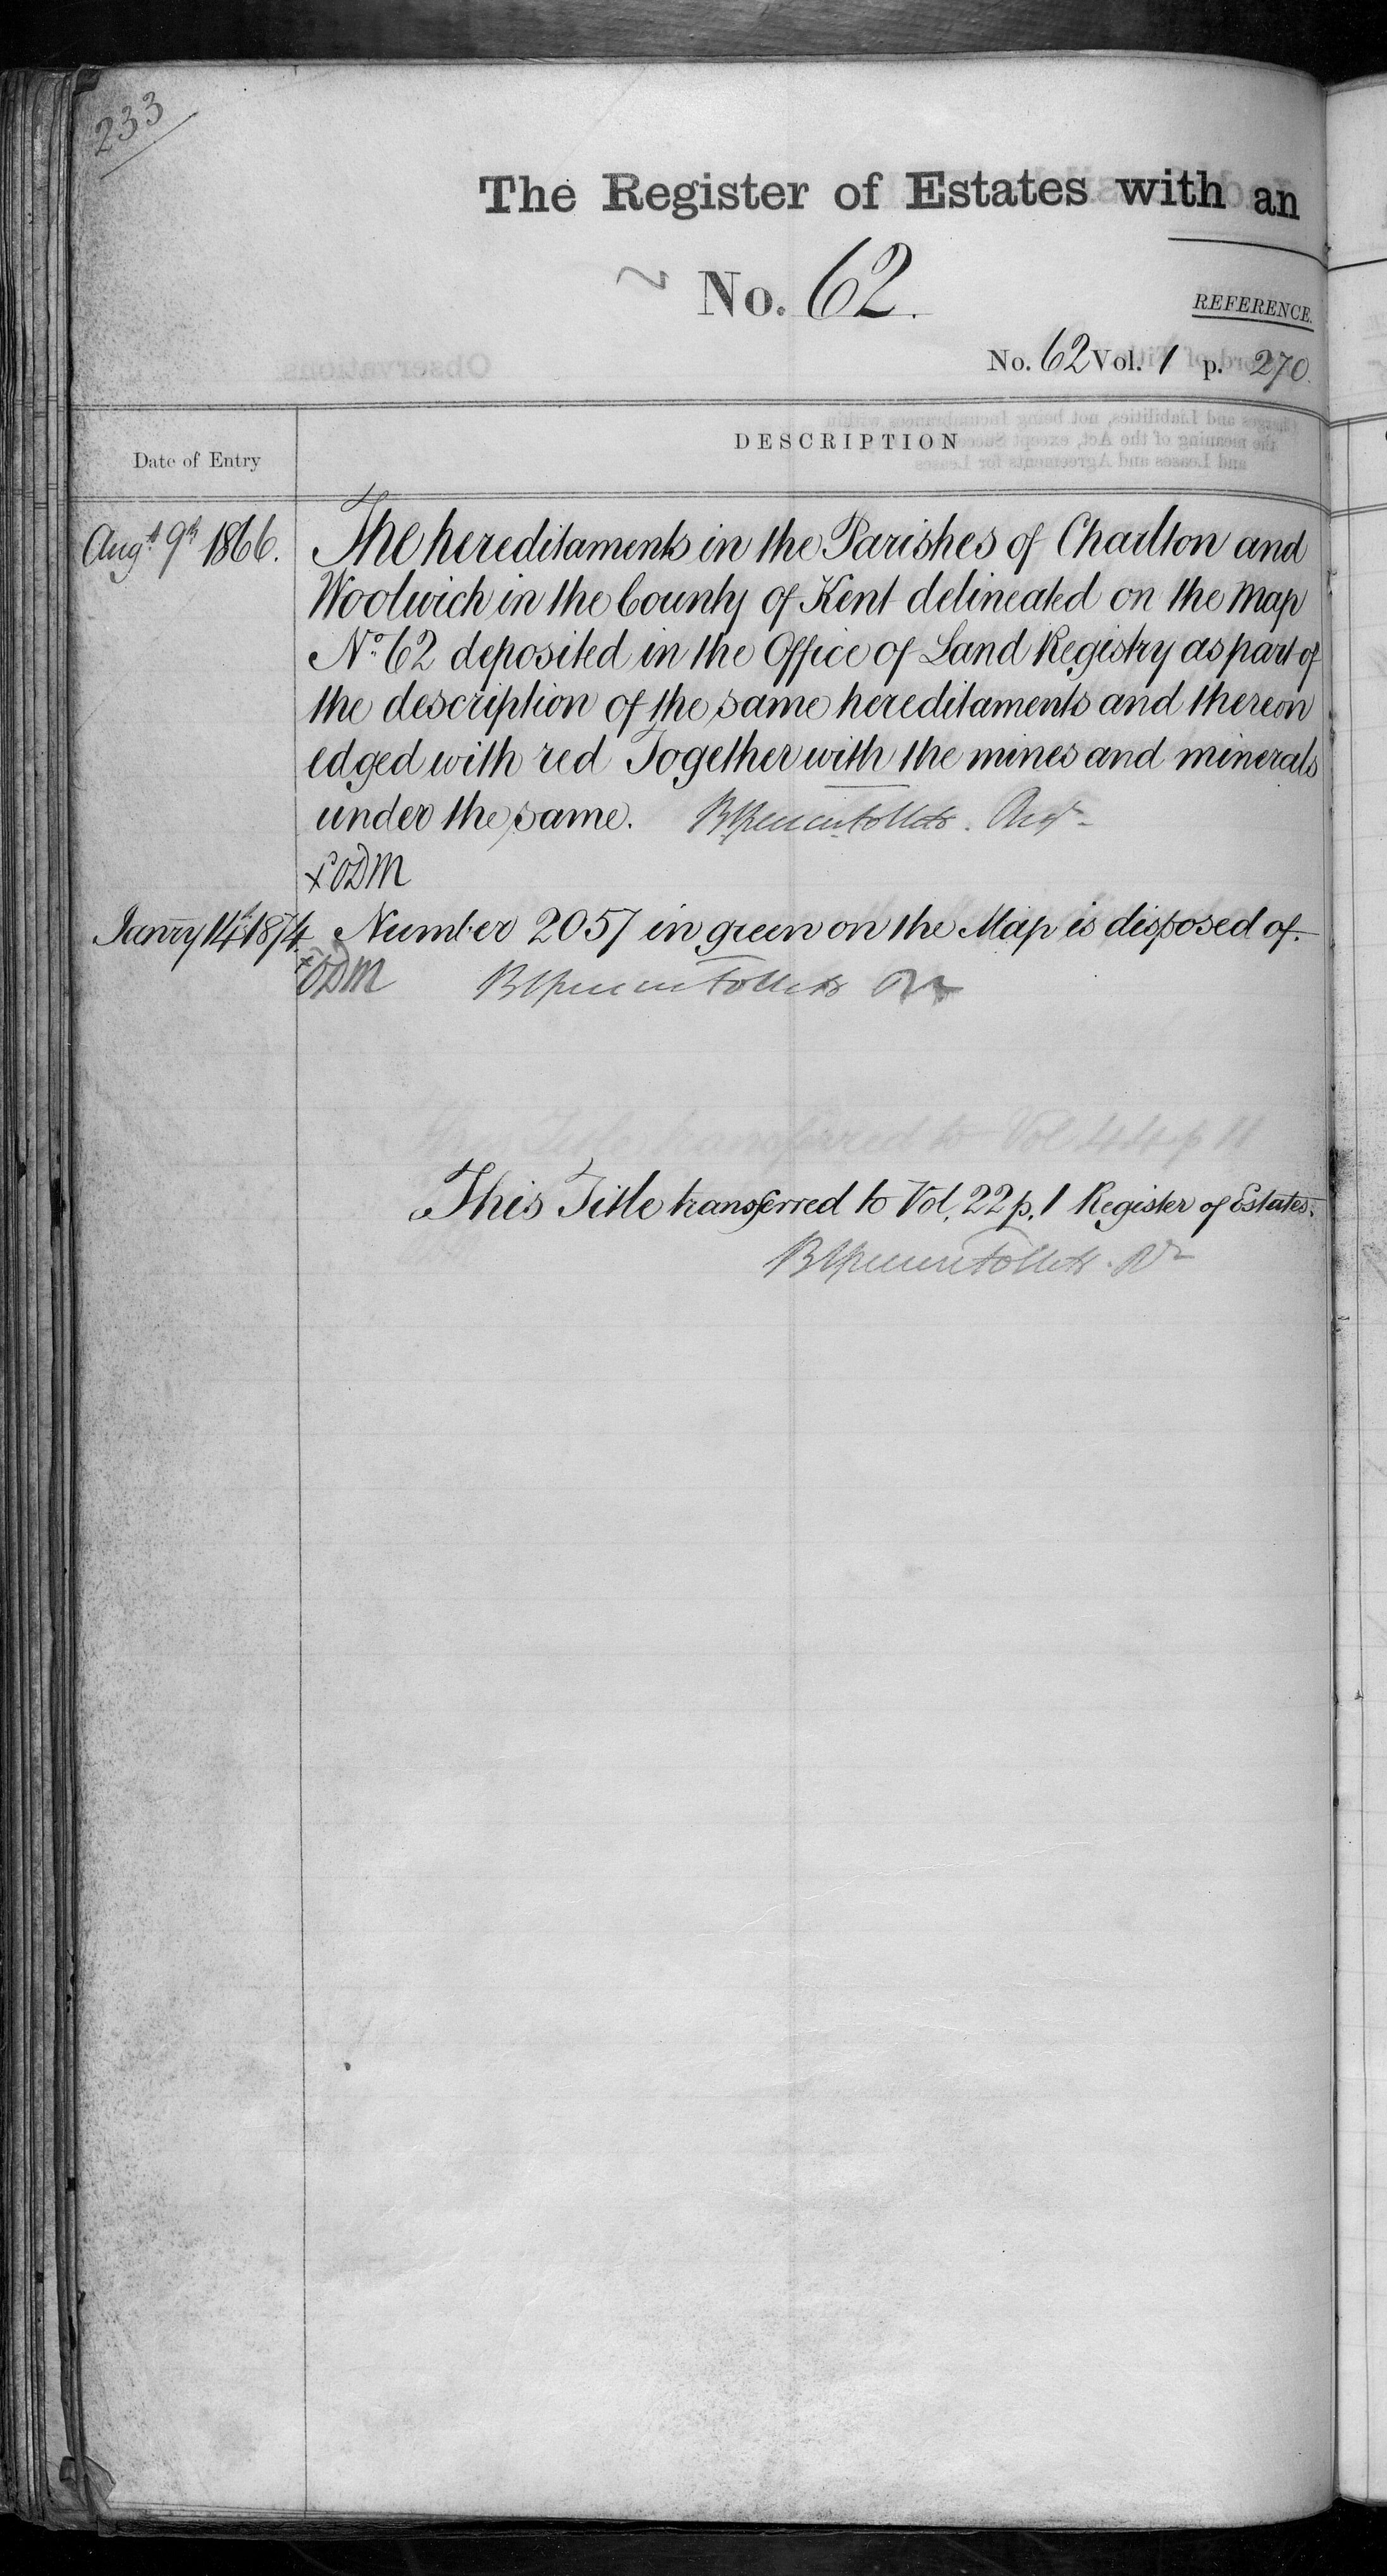 233
The Register of Estates with an
No. 62.
REFERENCE.
No. 62 Vol. 1 p. 270.
Date of Entry
DESCRIPTION
Augt. 9th 1866.
The hereditaments in the Parishes of Charlton and
Woolwich in the County of Kent delineated on the Map
No. 62 deposited in the Office of Land Registry as part of
the description of the same hereditaments and thereon
edged with red Together with the mines and minerals
under the same.
ODM
Janry 14th 1874
Number 2057 in green on the Map is disposed of.
ODM
This Title transferred to Vol 44 p 11
This Title transferred to Vol. 22 p. 1 Register of Estates.